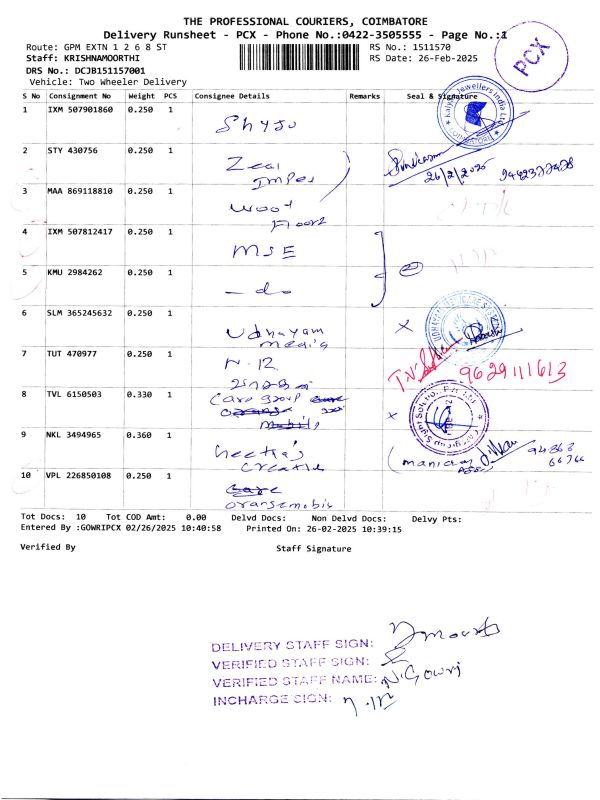 THE PROFESSIONAL COURIERS, COIMBATORE
Delivery Runsheet - PCX - Phone No.:0422-3505555 - Page No.:1
Route: GPM EXTN 1 2 6 8 ST
RS No.: 1511570
Staff: KRISHNAMOORTHI
RS Date: 26-Feb-2025
DRS No.: DCJB151157001
Vehicle: Two Wheeler Delivery
PCX
S No Consignment No Weight PCS Consignee Details Remarks Seal & Signature
1 IXM 507901860 0.250 1 Shysu
COIMBATORE
2 STY 430756 0.250 1 Zeal
Impex
26/2/2025
3 MAA 869118810 0.250 1 wood
Floorz
4 IXM 507812417 0.250 1 MSE
5 KMU 2984262 0.250 1 — do
6 SLM 365245632 0.250 1 Udhayam
media
7 TUT 470977 0.250 1 N-12
9629111613
8 TVL 6150503 0.330 1 Care group
9 NKL 3494965 0.360 1
Creative
10 VPL 226850108 0.250 1
Tot Docs: 10 Tot COD Amt: 0.00 Delvd Docs: Non Delvd Docs: Delvy Pts:
Entered By :GOWRIPCX 02/26/2025 10:40:58 Printed On: 26-02-2025 10:39:15
Verified By Staff Signature
DELIVERY STAFF SIGN:
VERIFIED STAFF SIGN:
VERIFIED STAFF NAME: N.Gowri
INCHARGE SIGN: